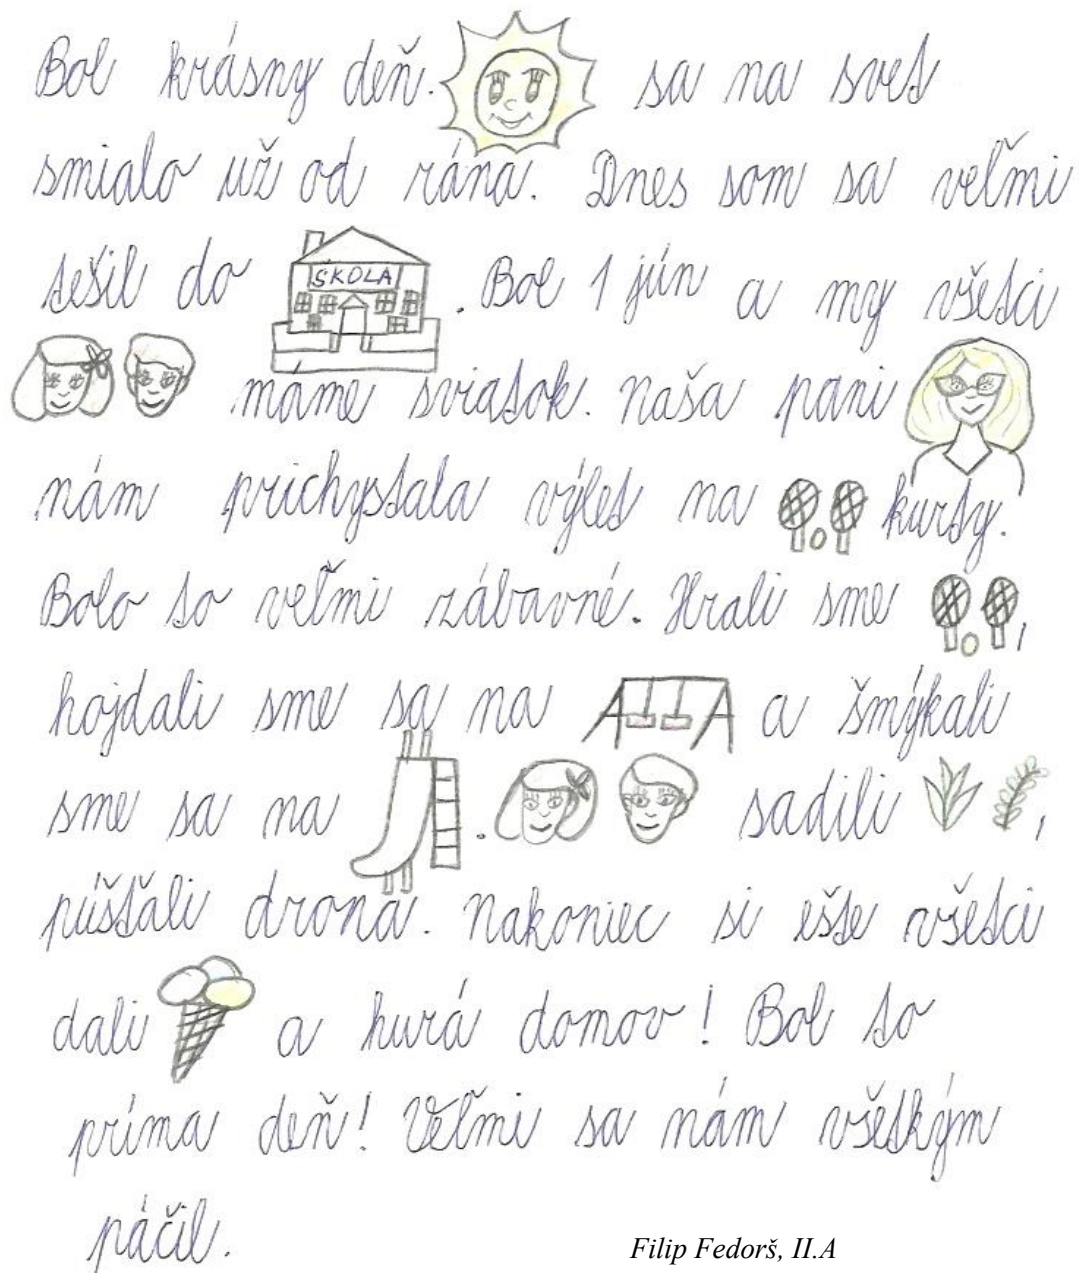 Bol krásny deň. sa na svet
smialo už od rána. Dnes som sa veľmi
tešil do ŠKOLA . Bol 1 jún a my všetci
máme sviatok. Naša pani
nám prichystala výlet na kurty.
Bolo to veľmi zábavné. Hrali sme ,
hojdali sme sa na a šmýkali
sme sa na . sadili ,
púšťali drona. Nakoniec si ešte všetci
dali a hurá domov! Bol to
príma deň! Veľmi sa nám všetkým
páčil.
Filip Fedorš, II.A